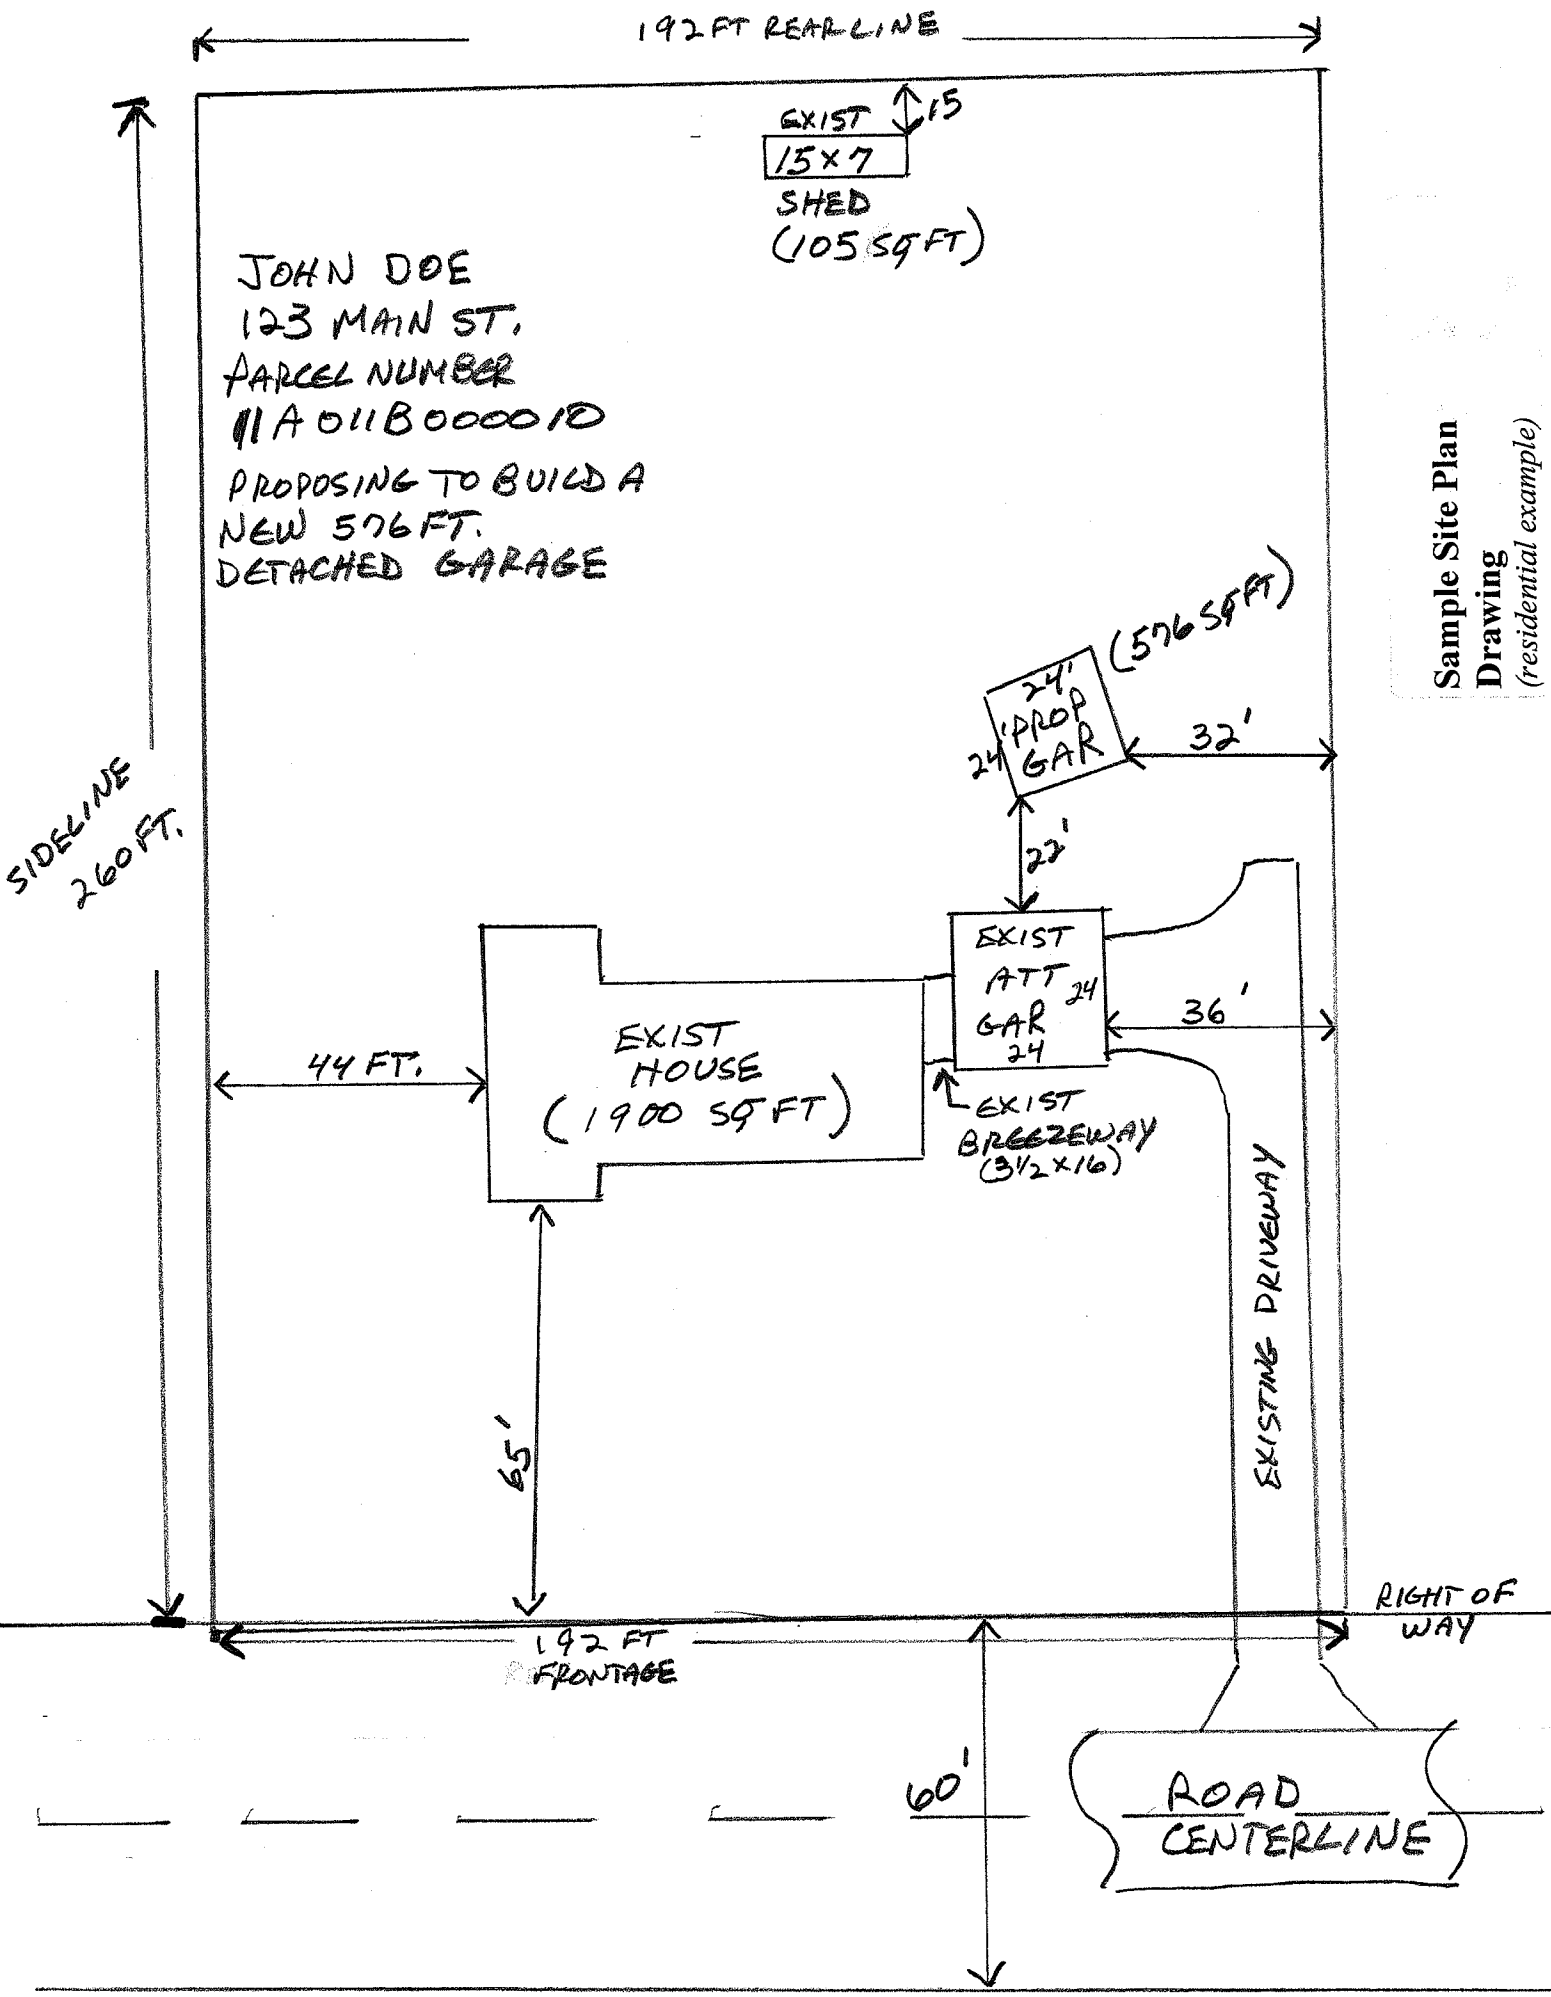 192 FT REAR LINE
15
EXIST
15 x 7
SHED
(105 SQ FT)
JOHN DOE
123 MAIN ST.
PARCEL NUMBER
11A011B000010
PROPOSING TO BUILD A
NEW 576 FT.
DETACHED GARAGE
Sample Site Plan
Drawing
(residential example)
(576 SQ FT)
24'
24' PROP
GAR
32'
SIDELINE
260 FT.
22'
EXIST
ATT
24
GAR
24
36'
44 FT.
EXIST
HOUSE
(1900 SQ FT)
EXIST
BREEZEWAY
(3 1/2 x 16)
EXISTING DRIVEWAY
65'
RIGHT OF
WAY
192 FT
FRONTAGE
60'
ROAD
CENTERLINE